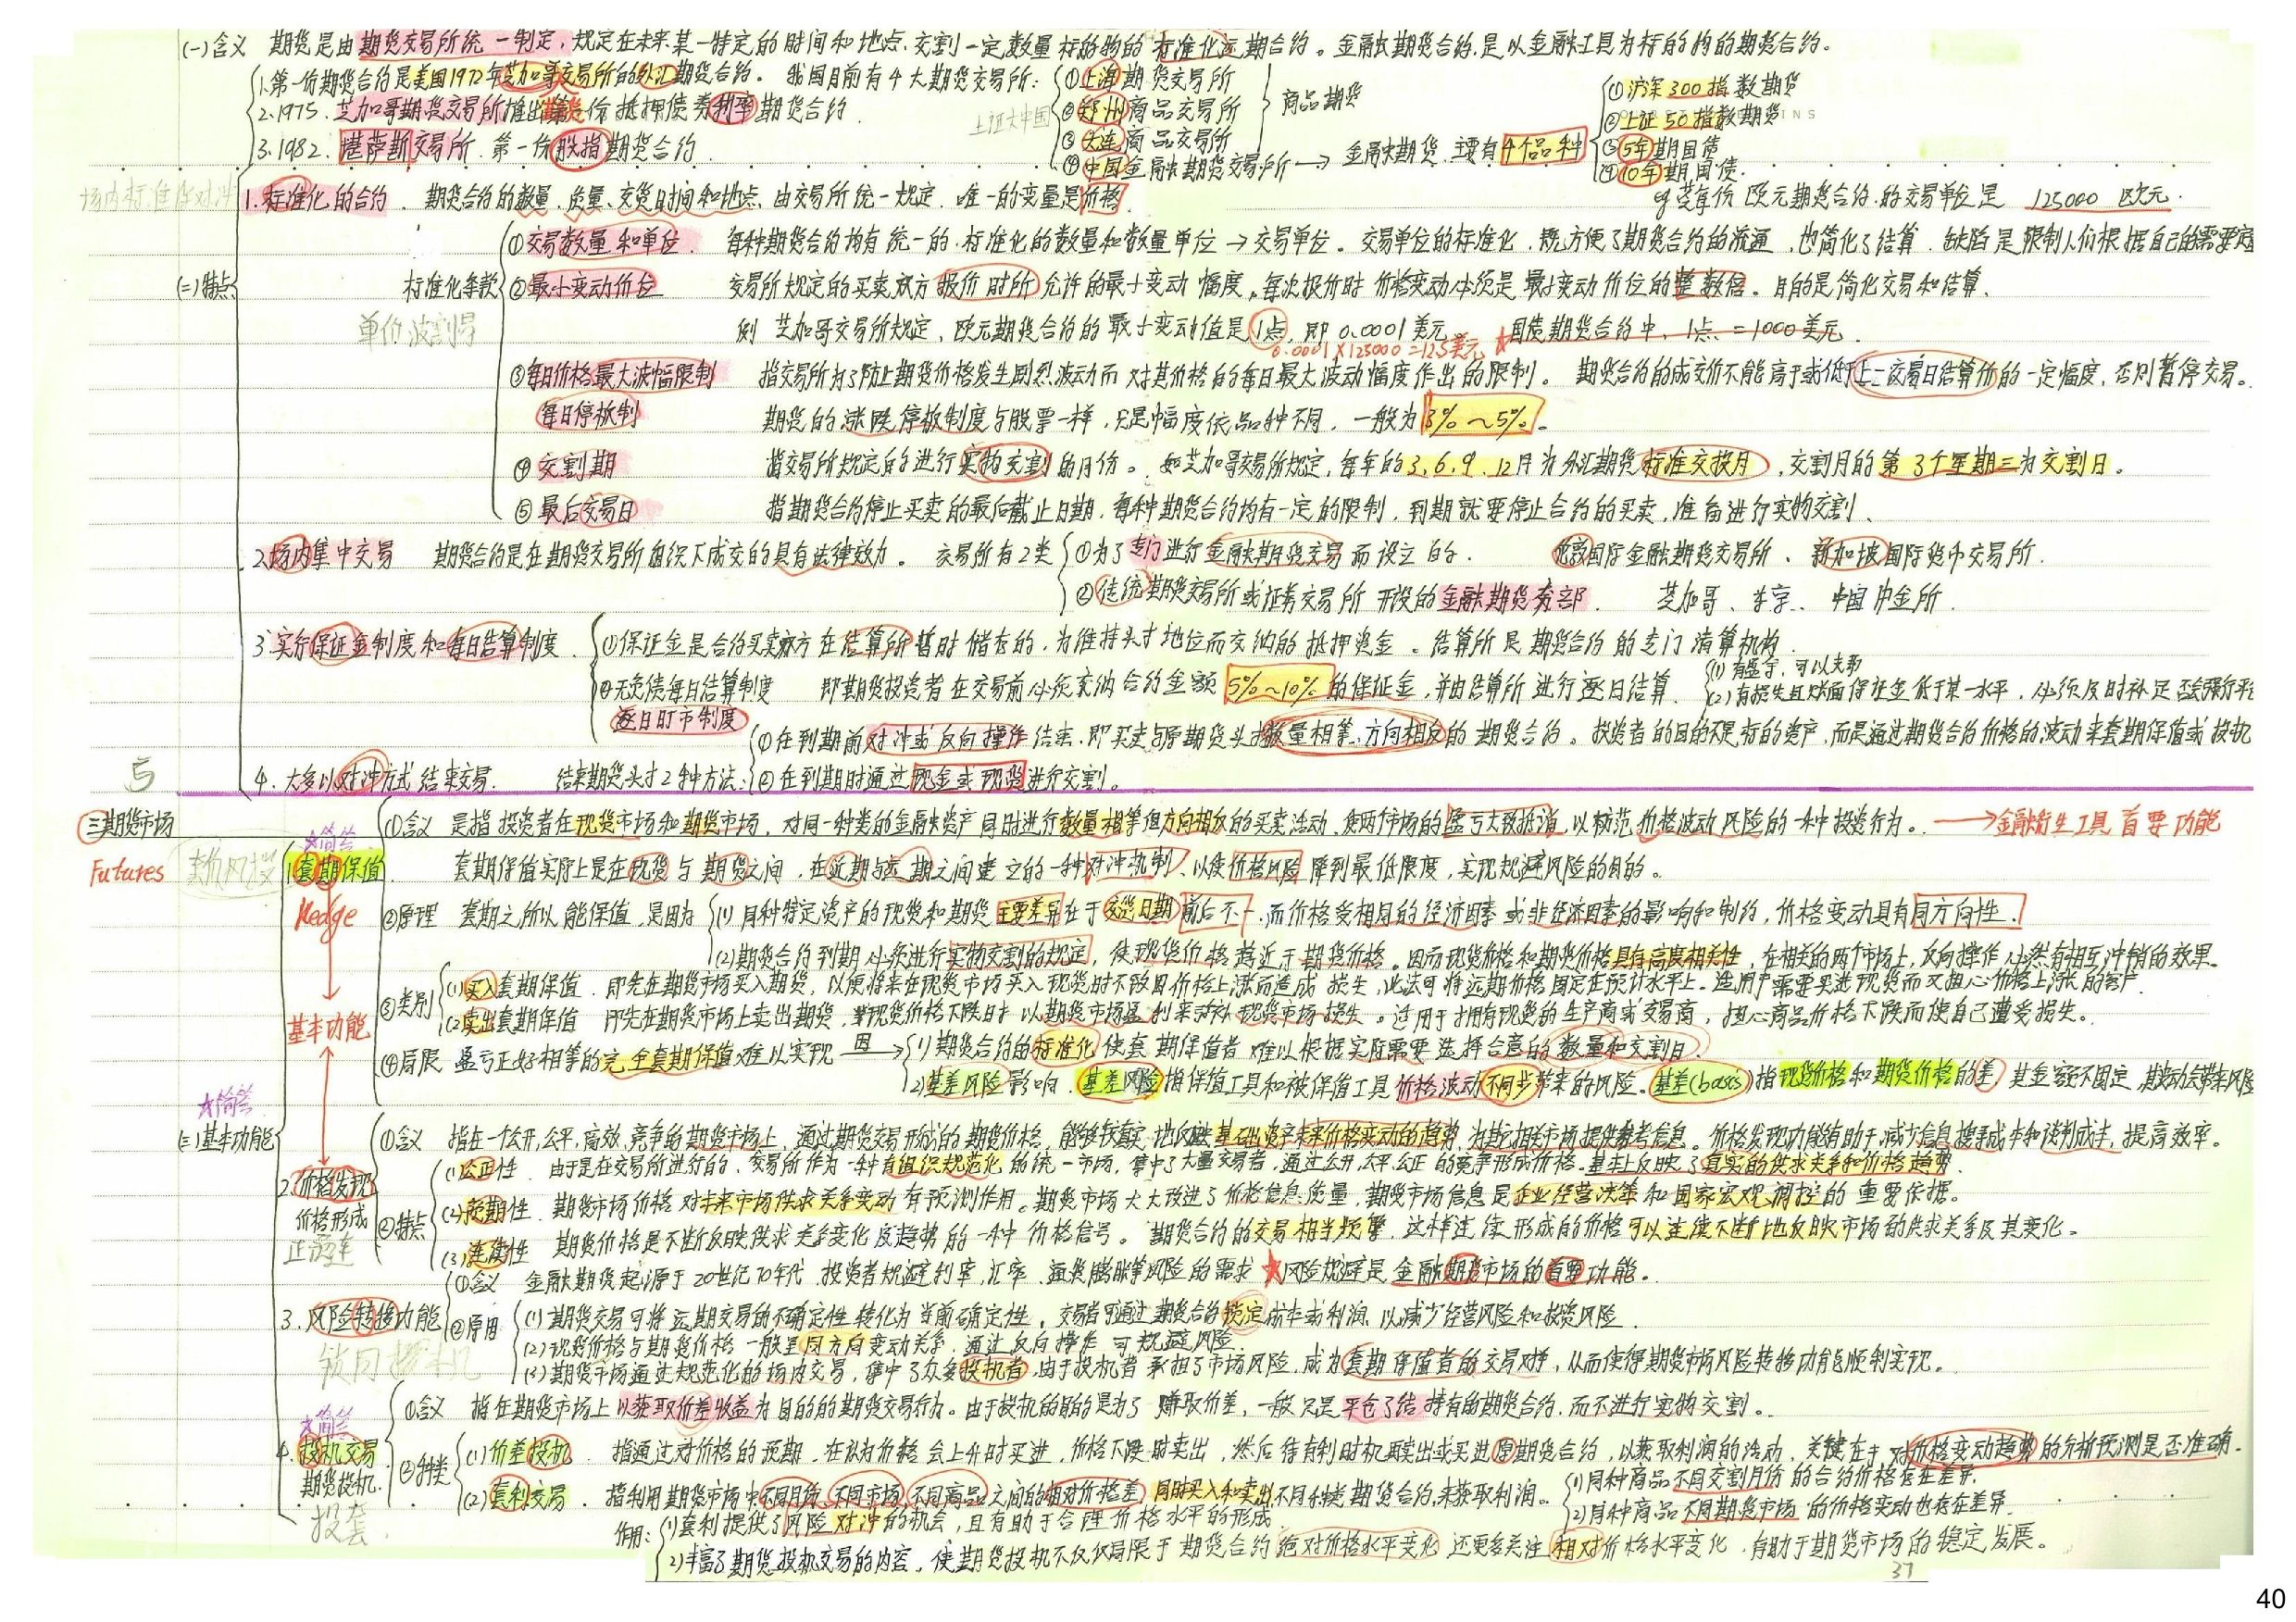 (一)含义 期货是由期货交易所统一制定,规定在未来某一特定的时间和地点、交割一定数量标的物的标准化远期合约。金融期货合约,是以金融工具为标的物的期货合约。
1.第一份期货合约是美国1972年芝加哥交易所的外汇期货合约。 我国目前有4大期货交易所: ①上海期货交易所
2.1975. 芝加哥期货交易所推出第一份抵押债券利率期货合约. ②郑州商品交易所 商品期货
上证大中国
3.1982. 堪萨斯交易所. 第一份股指期货合约. ③大连商品交易所
④中国金融期货交易所 → 金融期货.主要有4个品种
①沪深300指数期货
②上证50指数期货
③5年期国债
④10年期国债.
(二)特点
1.标准化的合约. 期货合约的数量、质量、交货时间和地点、由交易所统一规定.唯一的变量是价格.
eg 芝 欧元期货合约的交易单位是 125000 欧元.
标准化条款
①交易数量和单位. 每种期货合约均有统一的.标准化的数量和数量单位→交易单位。交易单位的标准化,既方便了期货合约的流通,也简化了结算.缺陷是限制人们根据自己的需要
②最小变动价位 交易所规定的买卖双方报价时所允许的最小变动幅度。每次报价时价格变动必须是最小变动价位的整数倍。目的是简化交易和结算、
例 芝加哥交易所规定,欧元期货合约的最小变动值是1点,即0.0001美元. ★国债期货合约中、1点=1000美元.
0.0001×125000=12.5美元
③每日价格最大波幅限制 指交易所为了防止期货价格发生剧烈波动而对其价格的每日最大波动幅度作出的限制。期货合约的成交价不能高于或低于上一交易日结算价的一定幅度,否则暂停交易。
每日停板制 期货的涨跌停板制度与股票一样,只是幅度依品种不同,一般为3%~5%。
④交割期 指交易所规定的进行实物交割的月份。如芝加哥交易所规定,每年的3、6、9、12月为外汇期货标准交割月,交割月的第3个星期三为交割日。
⑤最后交易日 指期货合约停止买卖的最后截止日期.每种期货合约均有一定的限制,到期就要停止合约的买卖,准备进行实物交割、
2.场内集中交易 期货合约是在期货交易所组织下成交的具有法律效力。 交易所有2类 ①为了专门进行金融期货交易而设立的. 伦敦国际金融期货交易所、新加坡国际货币交易所.
②传统期货交易所或证券交易所开设的金融期货交易部. 芝加哥、东京、中国中金所.
3.实行保证金制度和每日结算制度. ①保证金是合约买卖双方在结算所暂时储存的,为维持头寸地位而交纳的抵押资金。结算所是期货合约的专门清算机构.
②无负债每日结算制度 即期货投资者在交易前必须交纳合约金额5%~10%的保证金,并由结算所进行逐日结算.
逐日盯市制度
(1)有盈余,可以支取
(2)有损失且账面保证金低于某一水平,必须及时补足否则强行平
4.大多以对冲方式结束交易. 结束期货头寸2种方法:
①在到期前对冲或反向操作结束.即买卖与原期货头寸数量相等、方向相反的期货合约。投资者的目的不是标的资产,而是通过期货合约价格的波动来套期保值或投机
②在到期时通过现金或现货进行交割。
5
三期货市场
Futures
(三)基本功能
★简答
基本功能
1.套期保值
Hedge
★简答
①含义 是指投资者在现货市场和期货市场、对同一种类的金融资产同时进行数量相等但方向相反的买卖活动.使两个市场的盈亏大致抵消,以规范价格波动风险的一种投资行为。→金融衍生工具首要功能
套期保值实际上是在现货与期货之间、在近期与远期之间建立的一种对冲机制、以使价格风险降到最低限度,实现规避风险的目的。
②原理 套期之所以能保值,是因为 (1)同种特定资产的现货和期货主要差异在于交货日期前后不一.而价格受相同的经济因素或非经济因素的影响和制约,价格变动具有同方向性.
(2)期货合约到期必须进行实物交割的规定,使现货价格趋近于期货价格。因而现货价格和期货价格具有高度相关性,在相关的两个市场上,反向操作必然有相互冲销的效果。
③类别 (1)买入套期保值.即先在期货市场买入期货,以便将来在现货市场买入现货时不致因价格上涨而造成损失,此法可将远期价格固定在预计水平上。适用于需要买进现货而又担心价格上涨的客户.
(2)卖出套期保值 即先在期货市场上卖出期货,当现货价格下跌时以期货市场盈利来弥补现货市场损失。适用于拥有现货的生产商或交易商,担心商品价格下跌而使自己遭受损失。
④局限 盈亏正好相等的完全套期保值难以实现 因→ (1)期货合约的标准化使套期保值者难以根据实际需要选择合意的数量和交割日.
(2)基差风险影响.基差风险指保值工具和被保值工具价格波动不同步带来的风险。基差(bases)指现货价格和期货价格的差,其金额不固定.其波动会带来风险
2.价格发现
价格形成
①含义 指在一个公开,公平,高效,竞争的期货市场上,通过期货交易形成的期货价格,能够较真实地反映基础资产未来价格变动的趋势,为其相关市场提供参考信息。价格发现功能有助于减少信息搜寻成本和谈判成本,提高效率。
②特点 (1)公正性. 由于是在交易所进行的、交易所作为一种有组织规范化的统一市场,集中了大量交易者,通过公开,公平,公正的竞争形成价格.基本上反映了真实的供求关系和价格趋势.
(2)预期性. 期货市场价格对未来市场供求关系变动有预测作用。期货市场大大改进了价格信息质量,期货市场信息是企业经营决策和国家宏观调控的重要依据。
(3)连续性 期货价格是不断反映供求关系变化及趋势的一种价格信号。期货合约的交易相当频繁,这样连续形成的价格可以连续不断地反映市场的供求关系及其变化。
3.风险转移功能
①含义 金融期货起源于20世纪70年代 投资者规避利率,汇率、通货膨胀等风险的需求 ★风险规避是金融期货市场的首要功能。
②原因 (1)期货交易可将远期交易的不确定性转化为当前确定性。交易者可通过期货合约锁定成本或利润.以减少经营风险和投资风险.
(2)现货价格与期货价格一般呈同方向变动关系.通过反向操作可规避风险
(3)期货市场通过规范化的场内交易,集中了众多投机者.由于投机者承担了市场风险.成为套期保值者的交易对手,从而使得期货市场风险转移功能顺利实现。
★简答
4.投机交易
期货投机.
投套
①含义 指在期货市场上以获取价差收益为目的的期货交易行为。由于投机的目的是为了赚取价差,一般只是平仓了结持有的期货合约.而不进行实物交割。
②种类 (1)价差投机. 指通过对价格的预期.在认为价格会上升时买进,价格下跌时卖出,然后待有利时机再卖出或买进原期货合约,以获取利润的活动.关键在于对价格变动趋势的分析预测是否准确.
(2)套利交易. 指利用期货市场中不同月份、不同市场、不同商品之间的相对价格差,同时买入和卖出不同种类期货合约,来获取利润。
(1)同种商品不同交割月份的合约价格存在差异.
(2)同种商品不同期货市场的价格变动也存在差异.
作用: (1)套利提供了风险对冲的机会,且有助于合理价格水平的形成.
(2)丰富了期货投机交易的内容,使期货投机不仅仅局限于期货合约绝对价格水平变化 还更多关注相对价格水平变化.有助于期货市场的稳定发展。
37
40